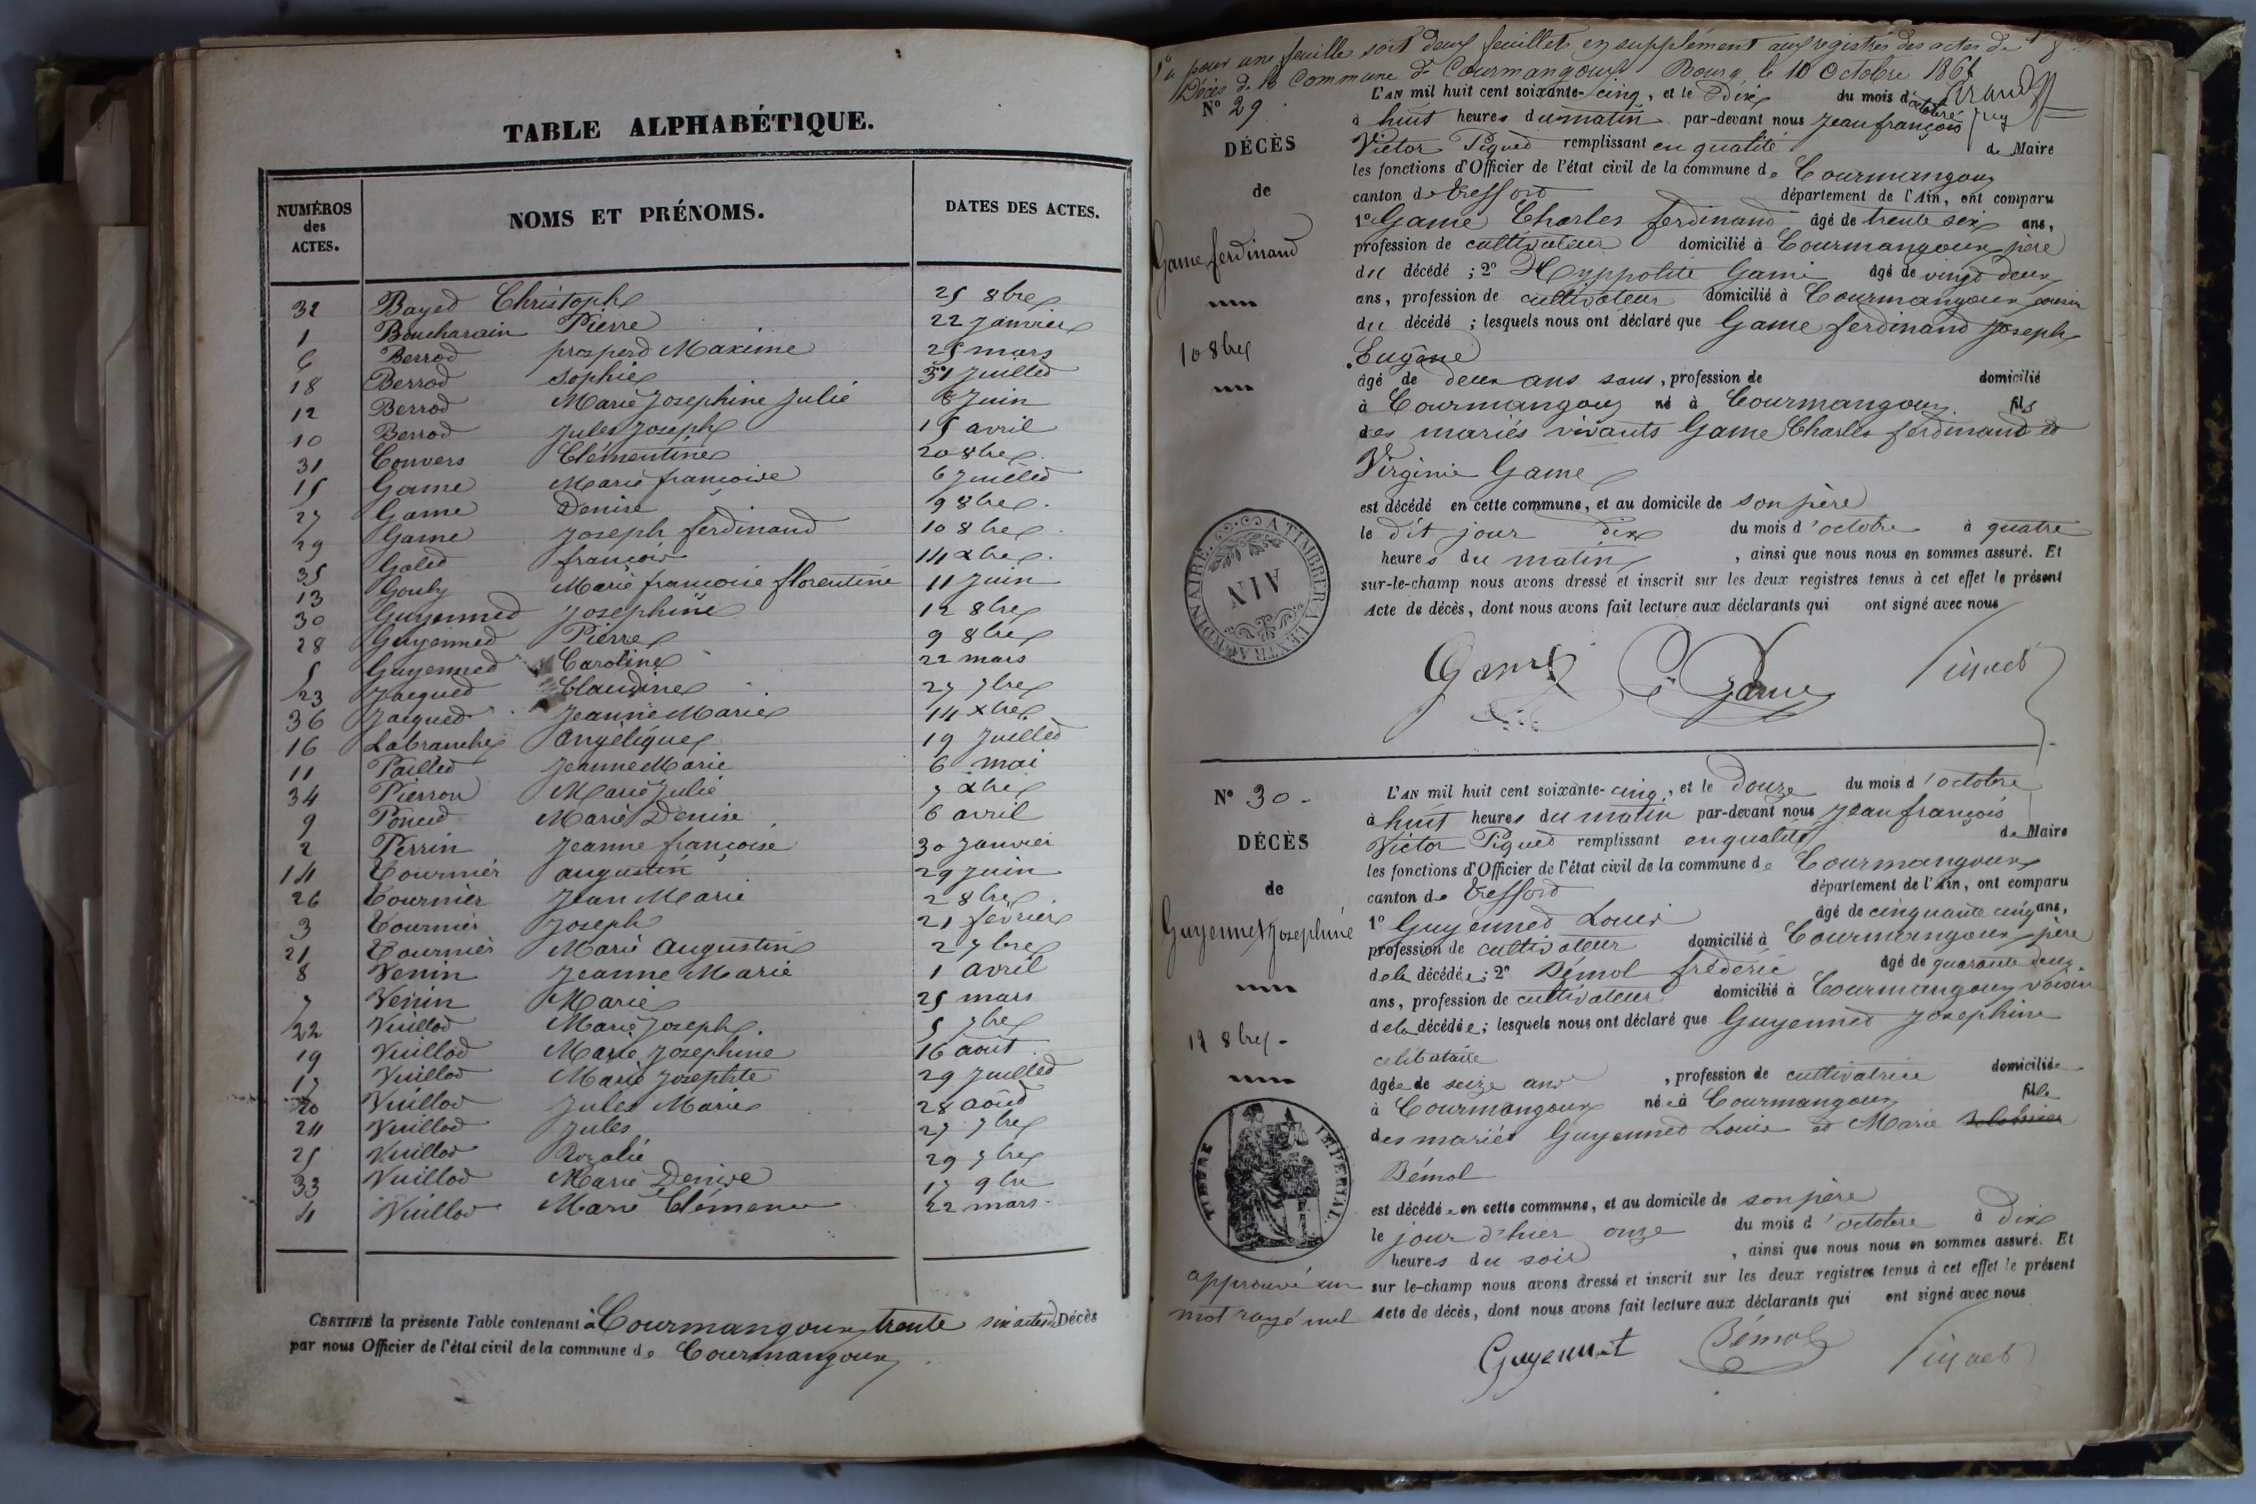 TABLE ALPHABÉTIQUE.
NUMÉROS des ACTES. NOMS ET PRÉNOMS. DATES DES ACTES.
32 Bayed Christophe 25 8bre
1 Boucharain Pierre 22 Janvier
6 Berrod prosperd Maxime 25 mars
18 Berrod Sophie 31 Juilled
12 Berrod Marie Josephine Julie 8 Juin
10 Berrod Jules Joseph 15 avril
31 Convers Clémentine 20 8bre.
15 Game Marie françoise 6 Juilled
27 Game Denise 9 8bre.
29 Game Joseph ferdinand 10 8bre.
35 Goled françois 14 xbre.
13 Gouly Marie françoise florentine 11 Juin
30 Guyenned Josephine 12 8bre
28 Guyenned Pierre 9 8bre
5 Guyenned Caroline 22 mars
23 Jacqued Claudine 27 7bre
36 Jacqued Jeanne Marie 14 xbre
16 Labranche angélique 19 Juilled
11 Pailled Jeanne Marie 6 mai
34 Pierron Marie Julie 7 xbre
9 Poncid Marie Denise 6 avril
2 Perrin Jeanne françoise 30 Janvier
14 Tournier augustin 29 Juin
26 Tournier Jean Marie 2 8bre.
3 Tournier Joseph 21 février
21 Tournier Marie Augustine 2 7bre
8 Venin Jeanne Marie 1 avril
7 Venin Marie 25 mars
22 Vuillod Marie Joseph. 5 7bre
19 Vuillod Marie Josephine 16 aout
17 Vuillod Marie Josephte 29 Juilled
20 Vuillod Jules Marie 28 aoud
24 Vuillod Jules 27 7bre
25 Vuillod Rozalie 29 7bre
33 Vuillod Marie Denise 17 9bre
4 Vuillod Marie Clémence 22 mars.
CERTIFIÉ la présente Table contenant à Courmangoux trente six actes de Décès
par nous Officier de l'état civil de la commune de Courmangoux.
Vu pour une feuille soit deux feuillets en supplément aux registres des actes de
Décès de la Commune de Courmangoux Bourg le 10 Octobre 186
N° 29.
DÉCÈS
de
Game ferdinand
10 8bre
L'AN mil huit cent soixante-cinq, et le Dix du mois d'octobre
à huit heures du matin par-devant nous Jean françois
Victor Piqued remplissant en qualité de Maire
les fonctions d'Officier de l'état civil de la commune de Courmangoux
canton de Trefford département de l'Ain, ont comparu
1° Game Charles ferdinand âgé de trente six ans,
profession de cultivateur domicilié à Courmangoux père
du décédé ; 2° Hyppolite Game âgé de vingd deux
ans, profession de cultivateur domicilié à Courmangoux cousin
du décédé ; lesquels nous ont déclaré que Game ferdinand Joseph
Eugène
âgé de deux ans sans, profession de domicilié
à Courmangoux né à Courmangoux. fils
des mariés vivants Game Charles ferdinand et
Virginie Game
est décédé en cette commune, et au domicile de son père
le dit jour dix du mois d'octobre à quatre
heures du matin, ainsi que nous nous en sommes assuré. Et
sur-le-champ nous avons dressé et inscrit sur les deux registres tenus à cet effet le présent
Acte de décès, dont nous avons fait lecture aux déclarants qui ont signé avec nous
A TIMBRER A L'EXTRAORDINAIRE.
AIN
Game C. Game Piqued
N° 30 -
DÉCÈS
de
Guyenned Josephine
12 8bre -
L'AN mil huit cent soixante-cinq, et le Douze du mois d'octobre
à huit heures du matin par-devant nous Jean françois
Victor Piqued remplissant en qualité de Maire
les fonctions d'Officier de l'état civil de la commune de Courmangoux
canton de Trefford département de l'Ain, ont comparu
1° Guyenned Louis âgé de cinquante cinq ans,
profession de cultivateur domicilié à Courmangoux père
de la décédée ; 2° Bémol fréderic âgé de quarante deux
ans, profession de cultivateur domicilié à Courmangoux voisin
de la décédée ; lesquels nous ont déclaré que Guyenned Josephine
celibataire
âgée de seize ans, profession de cultivatrice domiciliée
à Courmangoux née à Courmangoux fille
des mariés Guyenned Louis et Marie
Bémol
est décédée en cette commune, et au domicile de son père
le jour d'hier onze du mois d'octobre à dix
heures du soir, ainsi que nous nous en sommes assuré. Et
sur le-champ nous avons dressé et inscrit sur les deux registres tenus à cet effet le présent
Acte de décès, dont nous avons fait lecture aux déclarants qui ont signé avec nous
TIMBRE IMPÉRIAL.
approuvé un
mot rayé nul
Guyennet Bémol Piqued